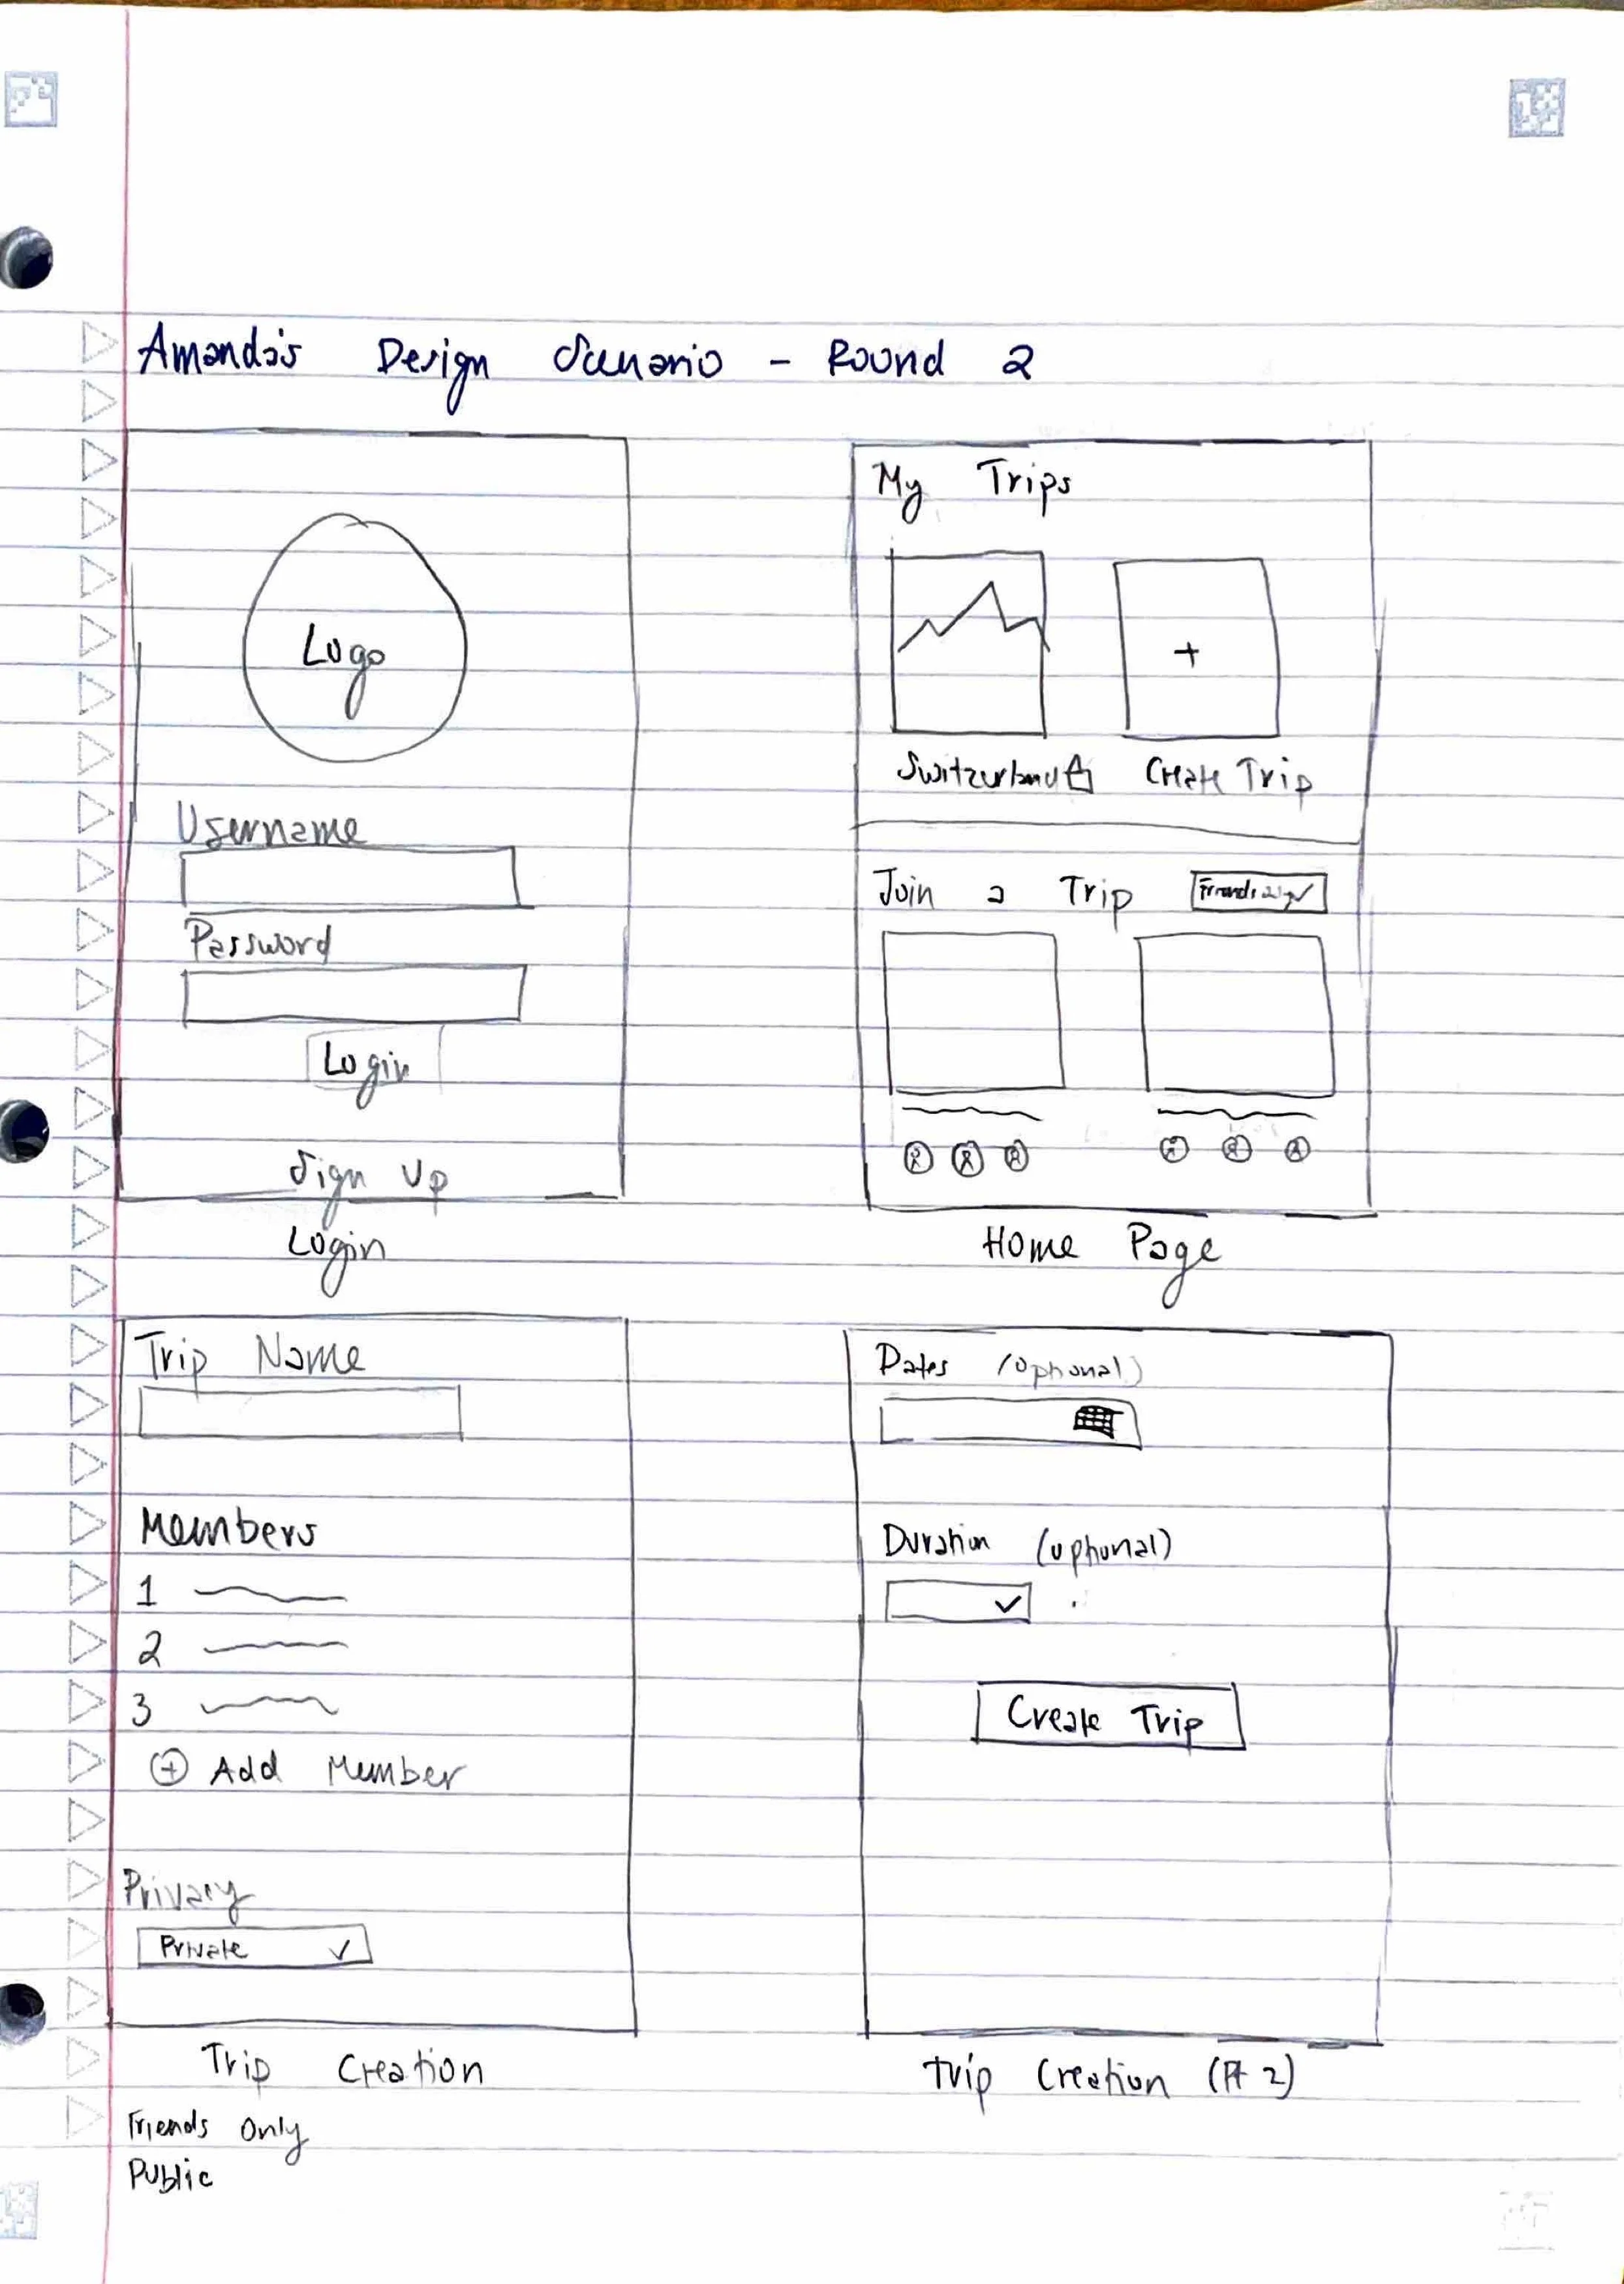 Amanda's Design Scenario - Round 2
Logo
Username
Password
Login
Sign Up
Login
My Trips
+
Switzerland
Create Trip
Join a Trip
Friends only
Home Page
Trip Name
Members
1
2
3
+ Add Member
Privacy
Private
Trip Creation
Friends Only
Public
Dates (optional)
Duration (optional)
Create Trip
Trip Creation (Pt 2)